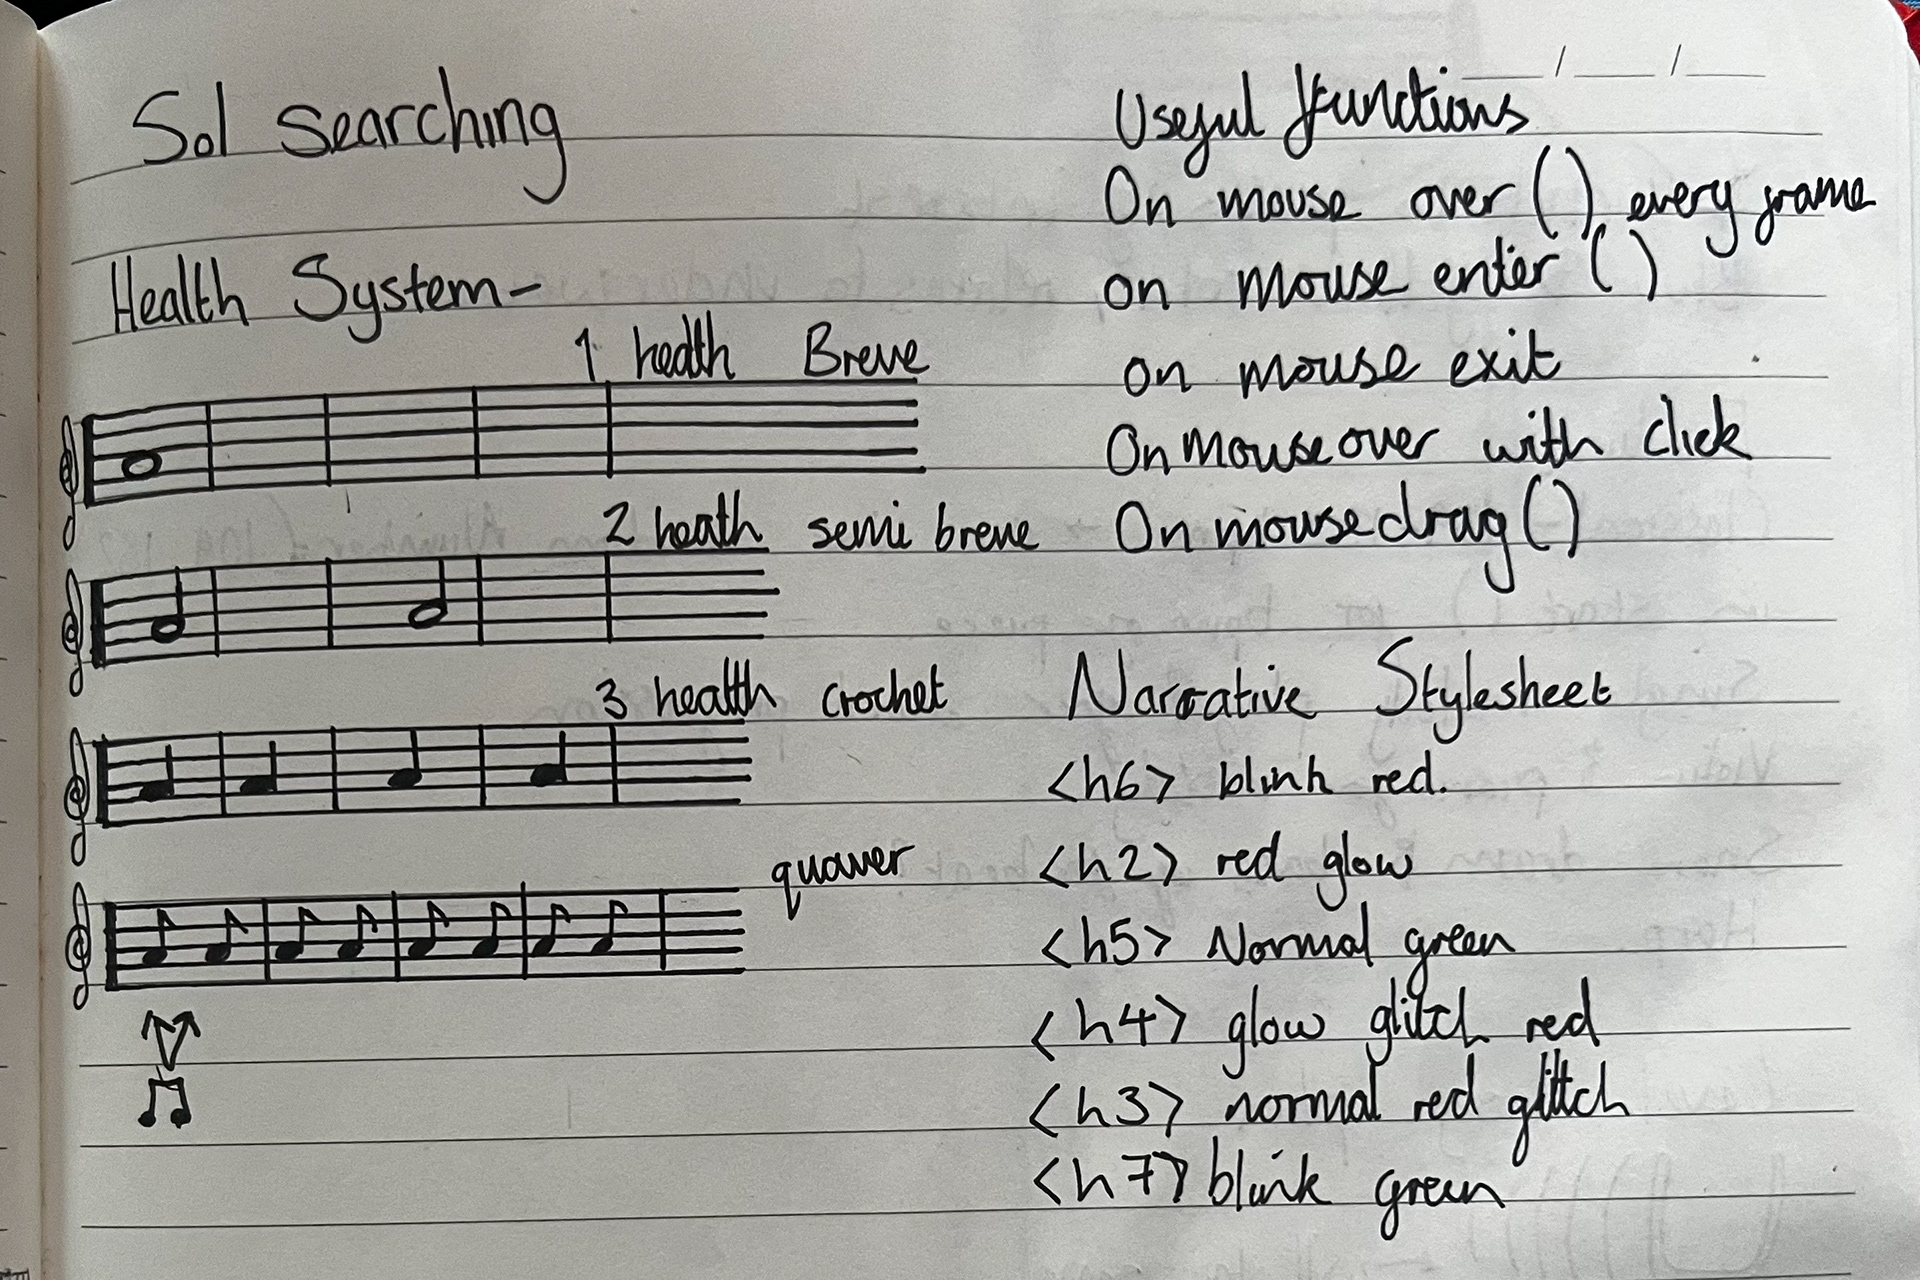 Sol searching
Health System-
1 health Breve
2 heath semi breve
3 health crochet
quaver
Useful functions
On mouse over () every frame
on mouse enter ()
on mouse exit
On mouse over with click
On mouse drag ()
Narrative Stylesheet
<h6> blink red.
<h2> red glow
<h5> Normal green
<h4> glow glitch red
<h3> normal red glitch
<h7> blink green